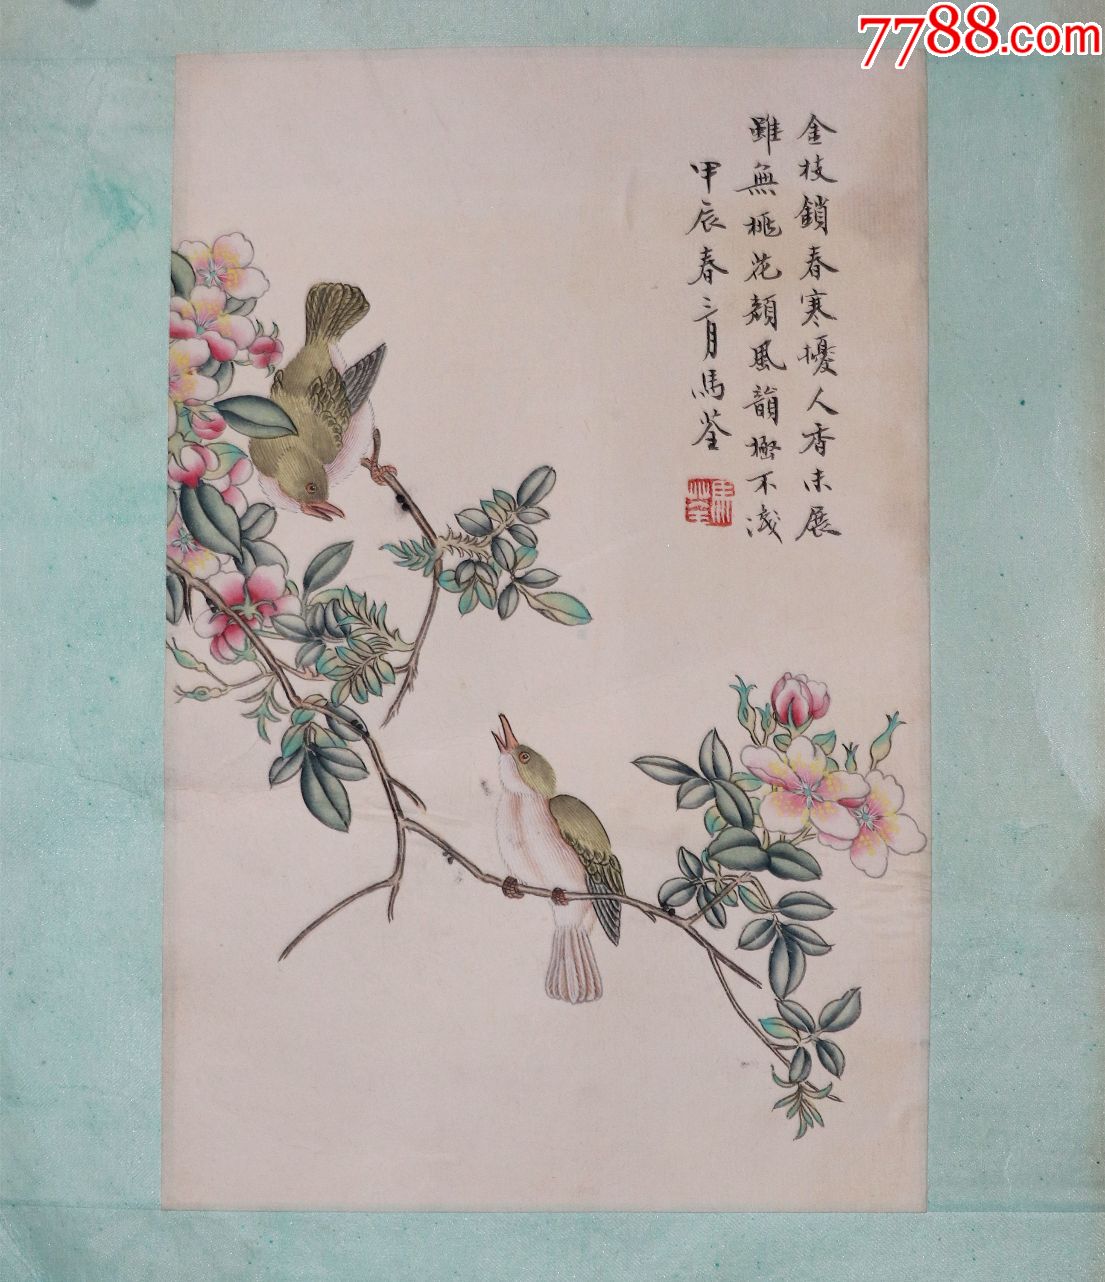 7788.com
金枝鎖春寒擾人香未展
雖無桃花顏風韻極不淺
甲辰春三月馬荃
馬荃